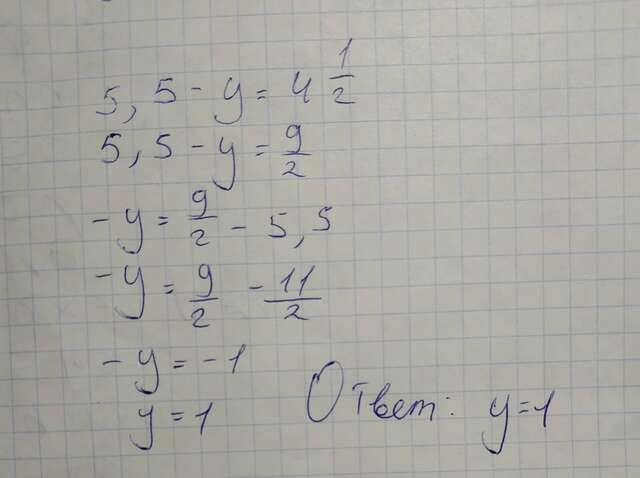 5,5 - y = 4 1/2
5,5 - y = 9/2
-y = 9/2 - 5,5
-y = 9/2 - 11/2
-y = -1
y = 1
Ответ: y = 1